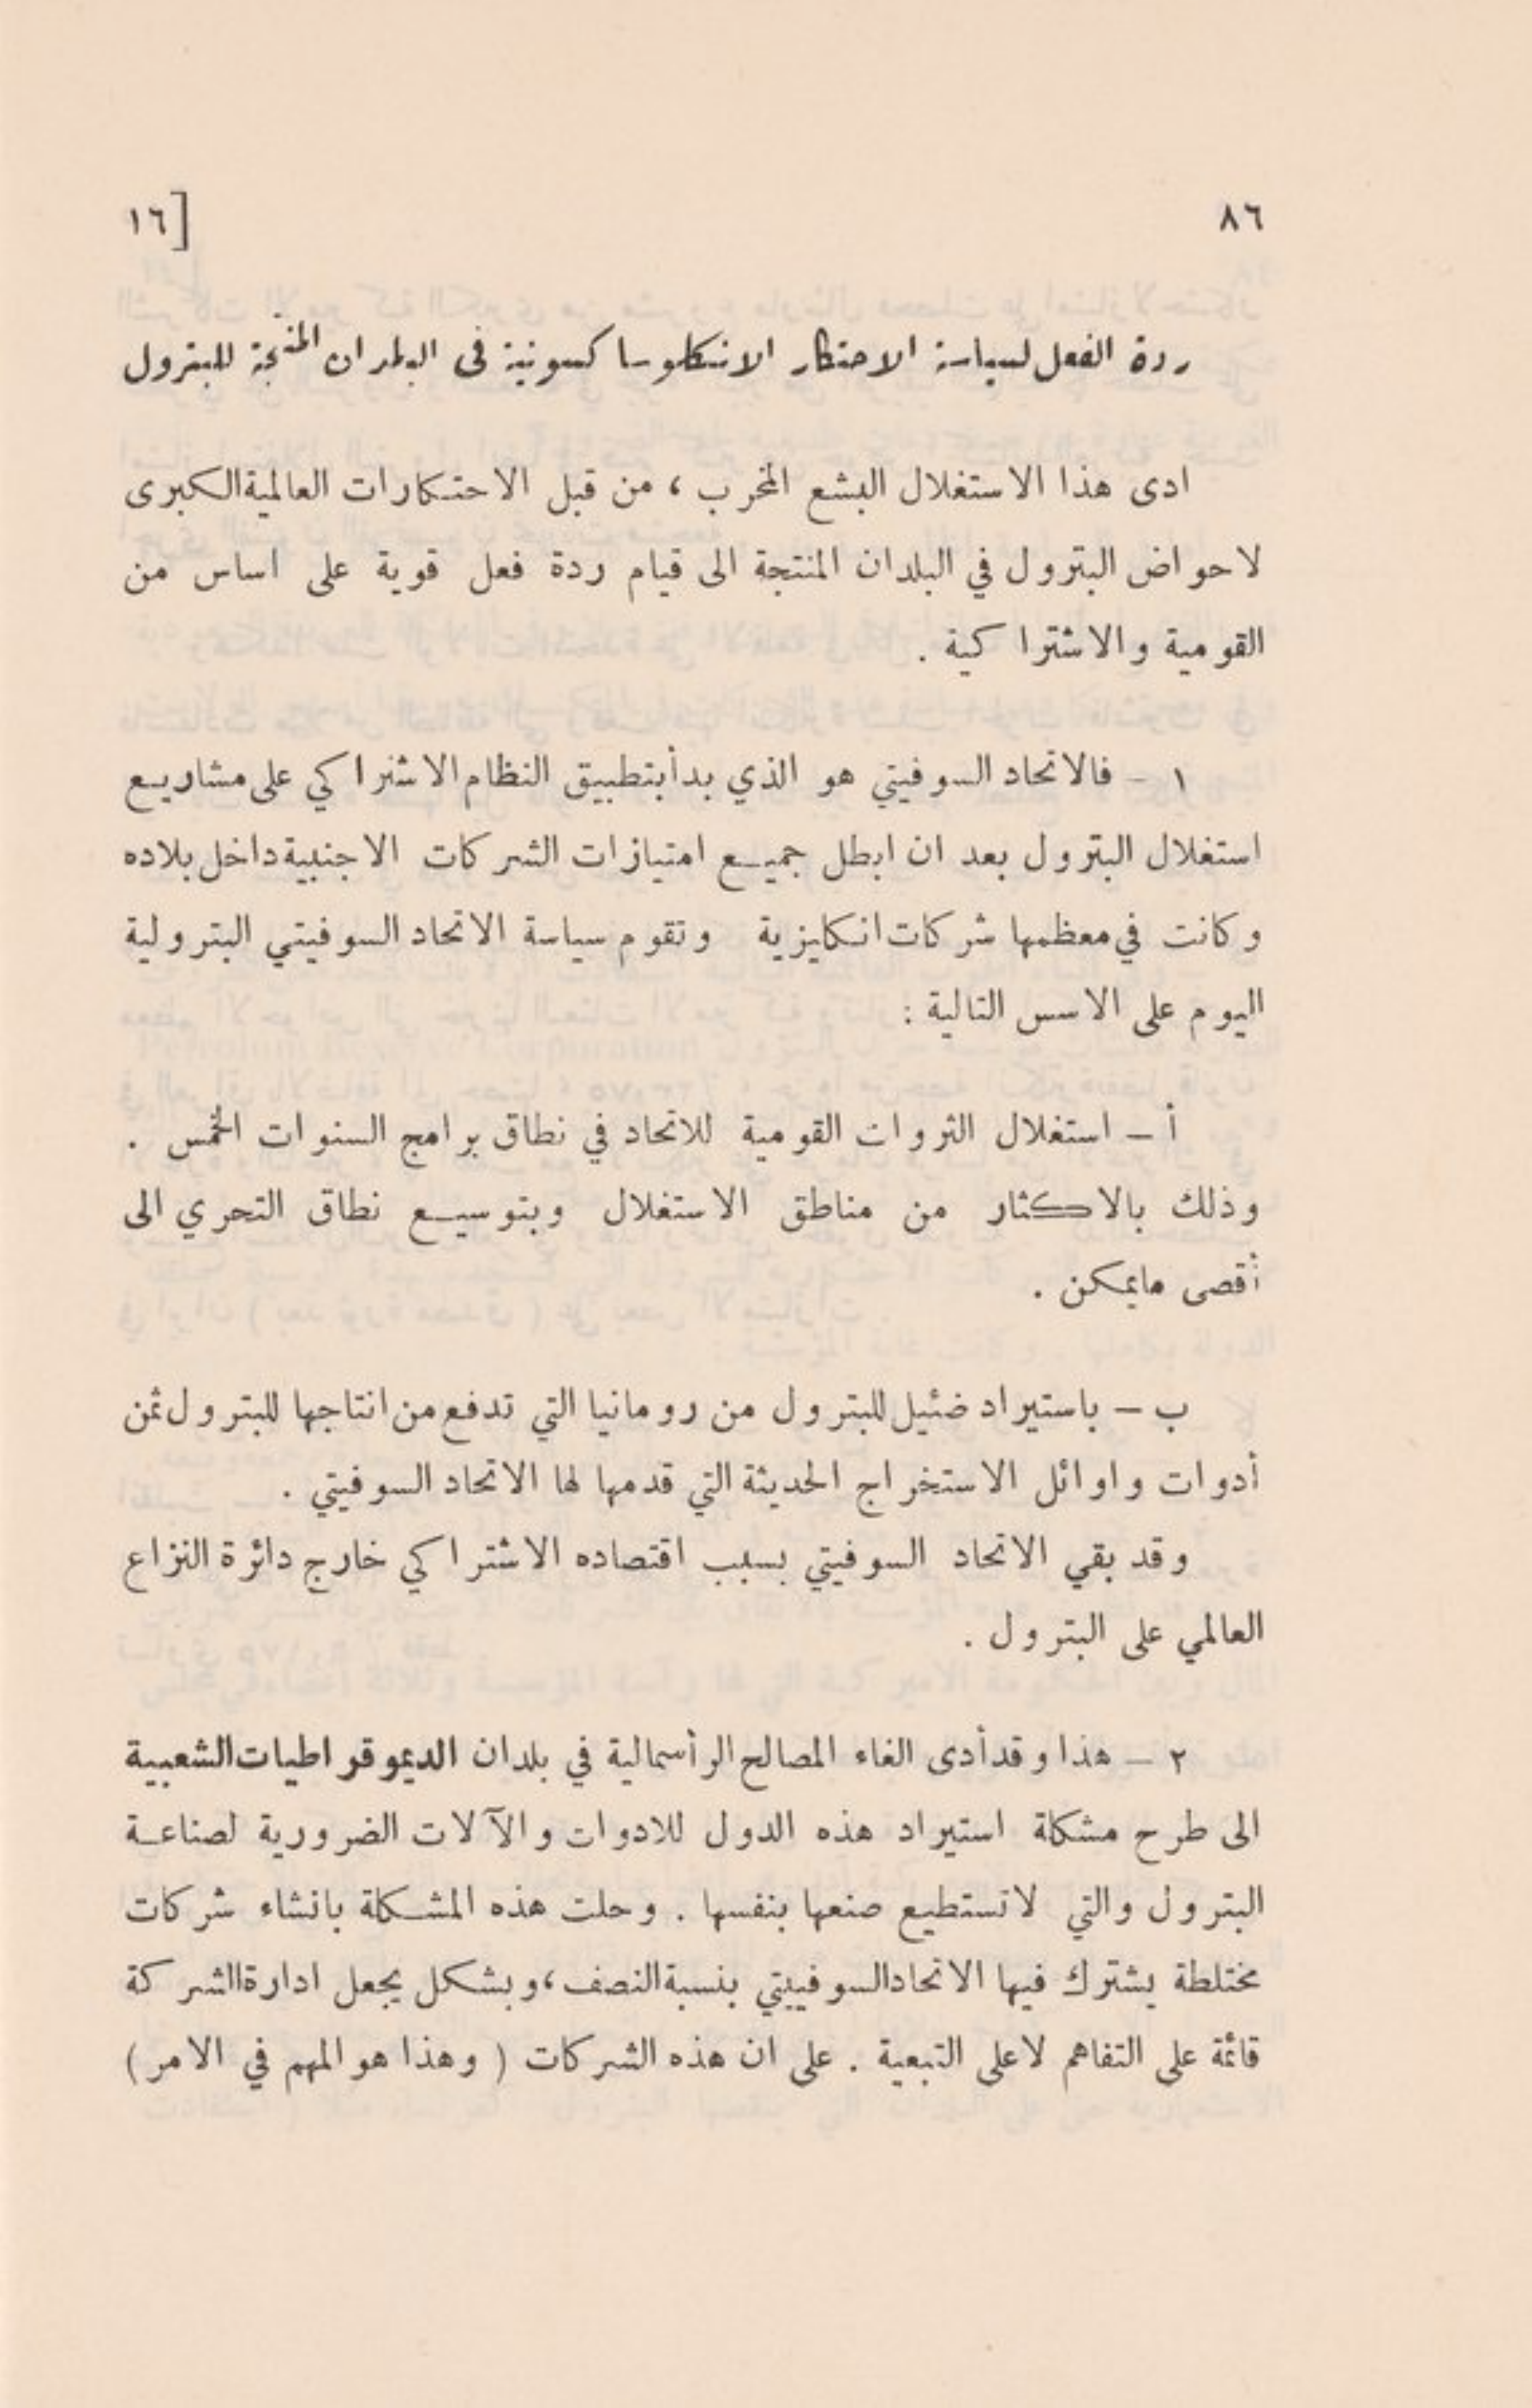 ٨٦ [١٦
ردة الفعل لسياسة الاحتكار الانكلوسا كسونية في البلدان المنتجة للبترول
ادى هذا الاستغلال البشع المخرب ، من قبل الاحتكارات العالمية الكبرى
لاحواض البترول في البلدان المنتجة الى قيام ردة فعل قوية على اساس من
القومية والاشتراكية .
١ – فالاتحاد السوفيتي هو الذي بدأ بتطبيق النظام الاشتراكي على مشاريع
استغلال البترول بعد ان ابطل جميع امتيازات الشركات الاجنبية داخل بلاده
وكانت في معظمها شركات انكليزية وتقوم سياسة الاتحاد السوفيتي البترولية
اليوم على الاسس التالية :
أ – استغلال الثروات القومية للاتحاد في نطاق برامج السنوات الخمس .
وذلك بالاكثار من مناطق الاستغلال وبتوسيع نطاق التحري الى
أقصى مايمكن .
ب – باستيراد ضئيل للبترول من رومانيا التي تدفع من انتاجها للبترول ثمن
أدوات واوائل الاستخراج الحديثة التي قدمها لها الاتحاد السوفيتي .
وقد بقي الاتحاد السوفيتي بسبب اقتصاده الاشتراكي خارج دائرة النزاع
العالمي على البترول .
٢ – هذا وقد أدى الغاء المصالح الرأسمالية في بلدان الديموقراطيات الشعبية
الى طرح مشكلة استيراد هذه الدول للادوات والآلات الضرورية لصناعة
البترول والتي لاتستطيع صنعها بنفسها . وحلت هذه المشكلة بانشاء شركات
مختلطة يشترك فيها الاتحاد السوفييتي بنسبة النصف ، وبشكل يجعل ادارة الشركة
قائمة على التفاهم لاعلى التبعية . على ان هذه الشركات ( وهذا هو المهم في الامر )